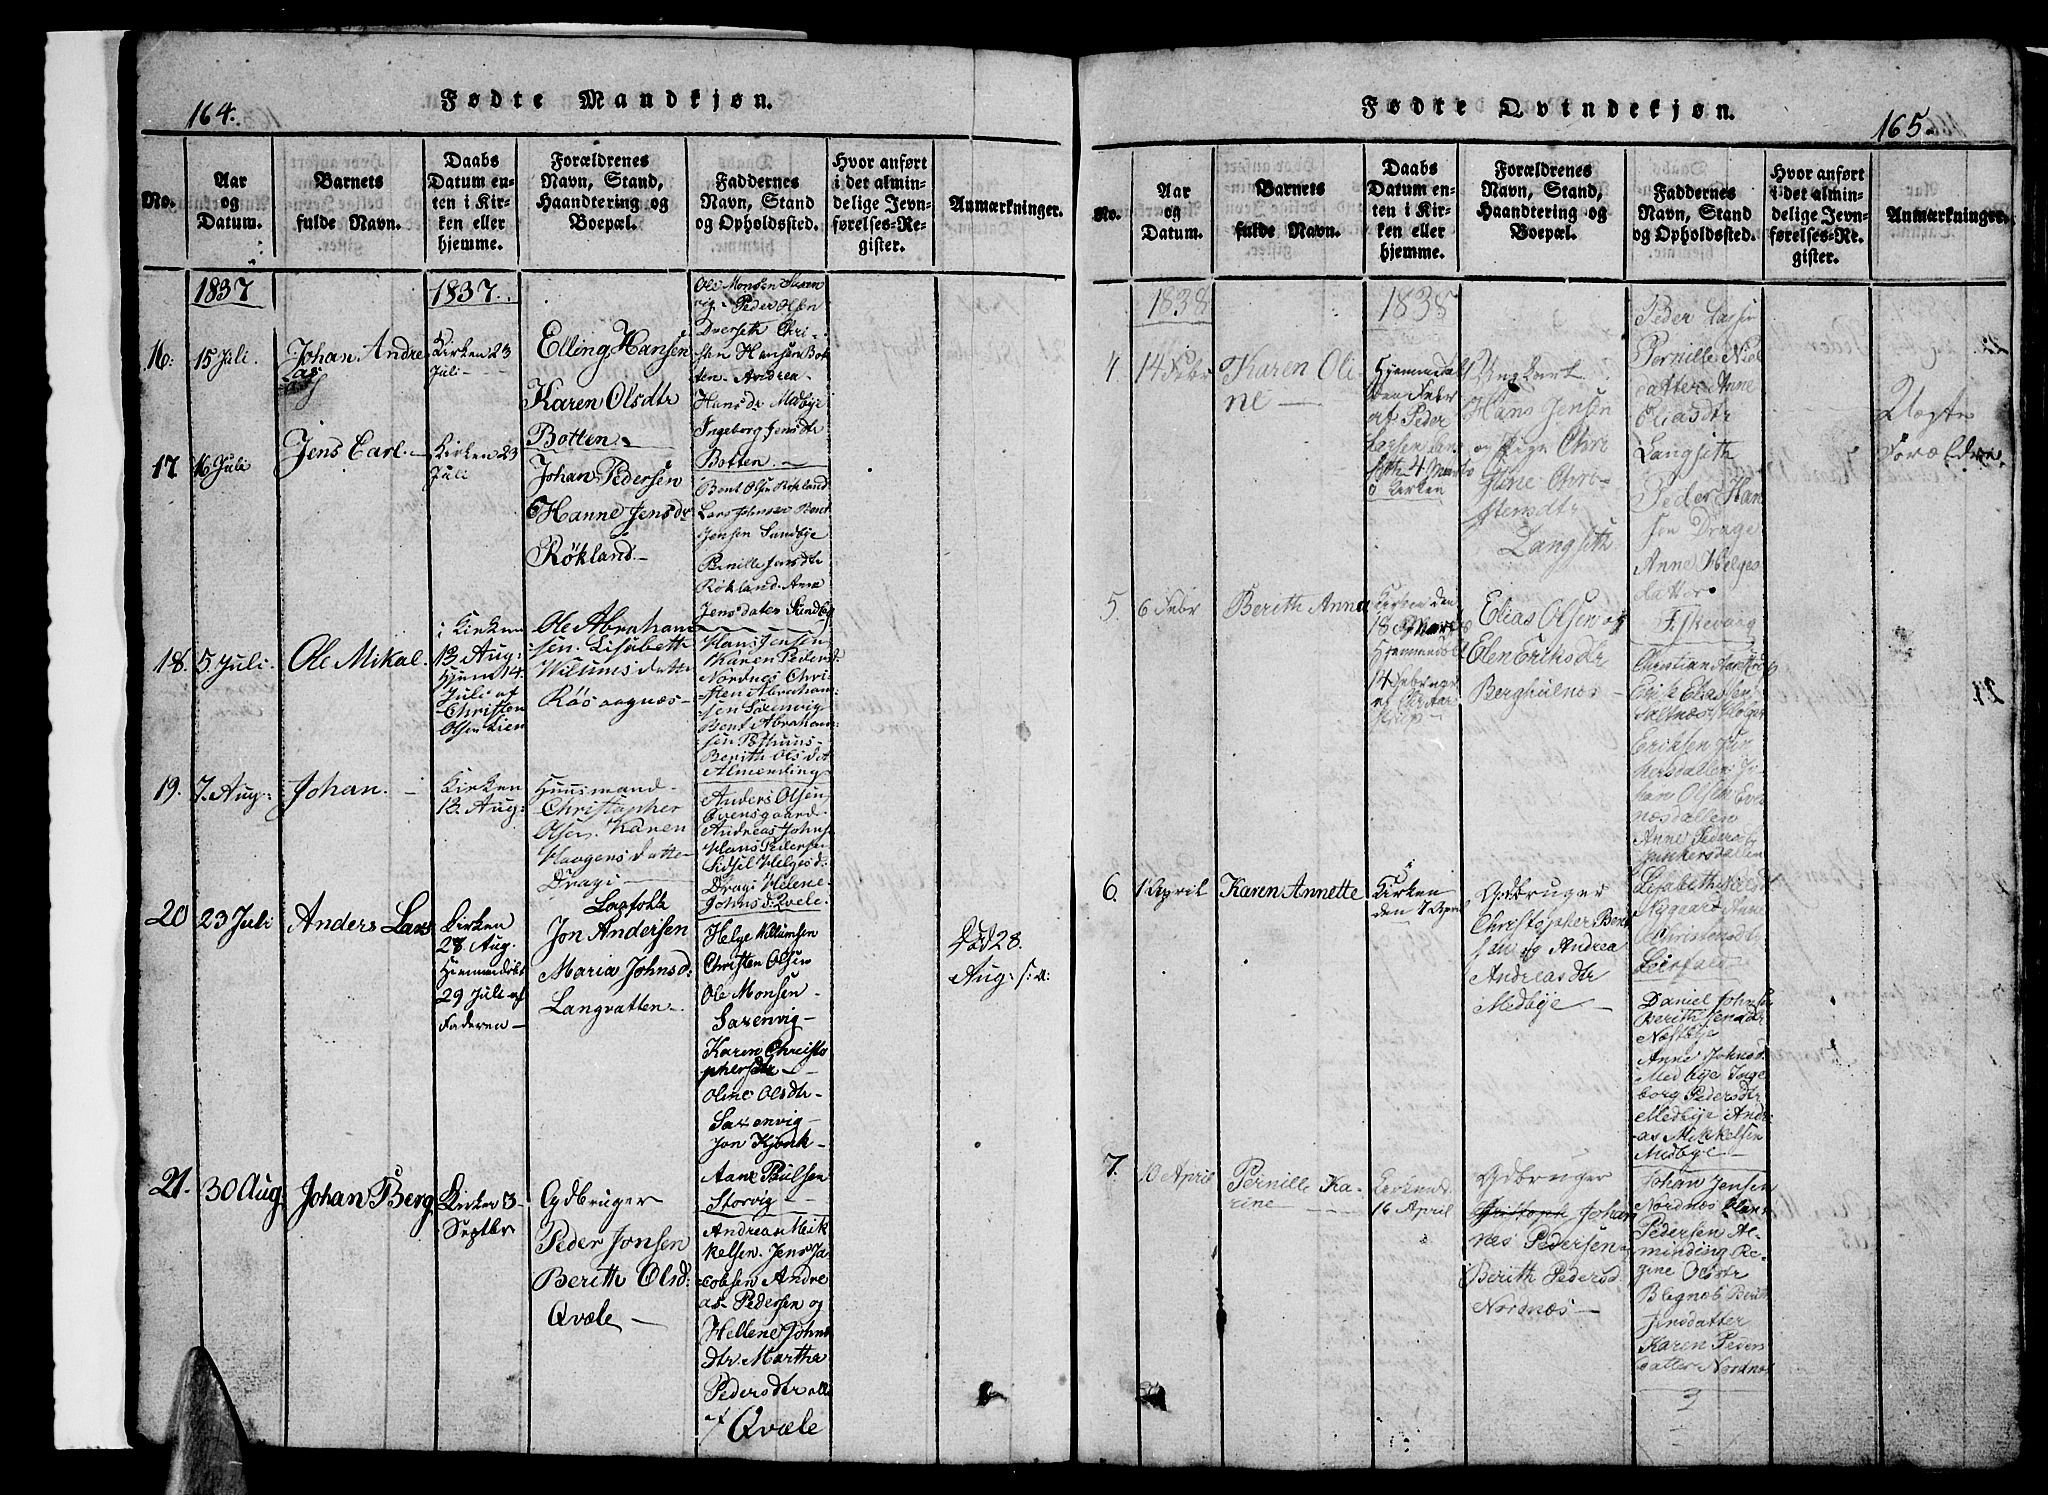 164.
Fødte Mandkjøn.
No.
Aar
og
Datum.
Barnets
fulde Navn.
Daabs
Datum en-
ten i Kir-
ken eller
hjemme.
Forældrenes
Navn, Stand,
Haandtering og
Boepæl.
Faddernes
Navn, Stand
og Opholdssted.
Hvor anført
i det almin-
delige Jevn-
førelses-Re-
gister.
Anmærkninger.
1837
1837.
16.
15 Juli.
Johan Andre
as
Kirken 23
Juli
Elling Hansen
Karen Olsdtr
Botten
Ole Monsen Saxen
vig Peder Olsen
Dverseth Chri-
sten Hansen Bot
ten Andrea
Hansdr Medbye
Ingeborg Jensdtr
Botten
17.
16 Juli
Jens Carl
Kirken 23
Juli
Johan Pedersen
Hanne Jensdr
Røkland
Bent Olsen Røkland
Lars Johnsen Bent
Jensen Sundbye
Pernille Jensdtr
Røkland Anne
Jensdater Sundby
18.
5 Juli.
Ole Mikal.
i Kirken
13 Aug:
Hjem 14
Juli af
Christen
Olsen Lien
Ole Abraham
sen. Lisabeth
Willumsdatter
Rösaagnæs
Hans Jensen
Karen Pedersd:
Nordnes Chri-
sten Abraham-
sen Saxenvig
Bent Abraham-
sen
Berith Olsdat
Almending
19.
7. Aug:
Johan.
Kirken
13. Aug:
Huusmand
Christopher
Olsen. Karen
Haagensdatter
Dragi
Anders Olsen
Evensgaard
Andreas Johns
Hans Pedersen
Sidsel Helgesd:
Dragi Helene
Johnsd: Qvele.
20
23 Juli
Anders Lars
Kirken
28 Aug.
Hjemmedøbt
29 Juli af
Faderen
Lapfolk
Jon Andersen
Maria Johnsd:
Langvatten
Helge Willumsen
Christen Olsen
Ole Monsen
Saxenvig
Karen Christo
phersdtr
Oline Olsdtr
Saxenvig
Jon Kjønk
Aane Paulsen
Storvig
Død 28.
Aug: s: a:
21.
30 Aug:
Johan Berg
Kirken 3
Septbr
Gdbruger
Peder Jonsen
Berith Olsd:
Qvæle
Andreas Mik
kelsen. Jens Ja
cobsen Andre
as Pedersen og
Hellene Johns
dtr. Martha
Pedersdtr alle
af Qvæle
Fødte Qvindekjøn.
165.
No.
Aar
og
Datum.
Barnets
fulde Navn.
Daabs
Datum en-
ten i Kir-
ken eller
hjemme.
Forældrenes
Navn, Stand,
Haandtering og
Boepæl.
Faddernes
Navn, Stand
og Opholdssted.
Hvor anført
i det almin-
delige Jevn-
førelses-Re-
gister.
Anmærkninger.
1838
1838
4
14 Febr
Karen Oli
ne
Hjemmedøbt
af Peder
Larsen Lang
seth 4 Marts
i Kirken
Ungkarl
Hans Jensen
og Pige Chri
stine Chri-
stensdtr
Langseth
Peder Larsen
Pernille Niels
datter Anne
Eliasdtr
Langseth
Peder Han
sen Drage
Anne Helges
datter
Fiskevaag
Uægte
Forældre
5.
6 Febr
Berith Anna
Kirken den
18 Marts
Hjemmedøbt
14 Febr
Elias Olsen og
Elen Eriksdtr
Berghulnes
Erik Eliassen
Saltnes Holger
Eriksen Jun
kersdallen Jo-
han Olsen Even
næsdallen
Anne Pedersd
Junkersdallen
Lisabeth Nielsd
Nygaard Anne
Christensd
Leirfald
6.
1 April
Karen Annette
i
Kirken
den 7 April
Gdbruger
Christopher Bent
sen og Andrea
Andreasdtr
Medbye
Daniel Johnsen
Berith Jensdr
Næstbye
Anne Johnsd.
Medbye Inge
borg Pedersdtr
Medbye Andr
as Mikkelsen
Medbye
7.
10 April
Pernille Ka-
rine
16 April
Gdbruger
Christoph Johan
nes Pedersen
Berith Pedersd
Nordnæs
Johan Jensen
Nordnæs Hans
Pedersen Al-
minding Re-
gine Olsdtr
BLegnæs Berith
Jensdatter
Karen Peders
datter Nordnæs